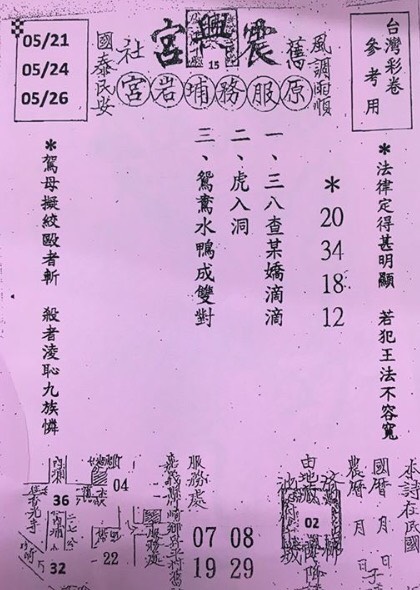 台灣彩卷
參考用
風調雨順
震興宮
15
舊社
國泰民安
原服務埔岩宮
05/21
05/24
05/26
*法律定得甚明顯 若犯王法不容寬
*
20
34
18
12
一、三八查某嬌滴滴
二、虎入洞
三、鴛鴦水鴨成雙對
*駕母擬絞毆者斬 殺者淩恥九族憐
國曆 月 日
農曆 月 日
02
服務處
07 08
19 29
04
服務處
22
36
32